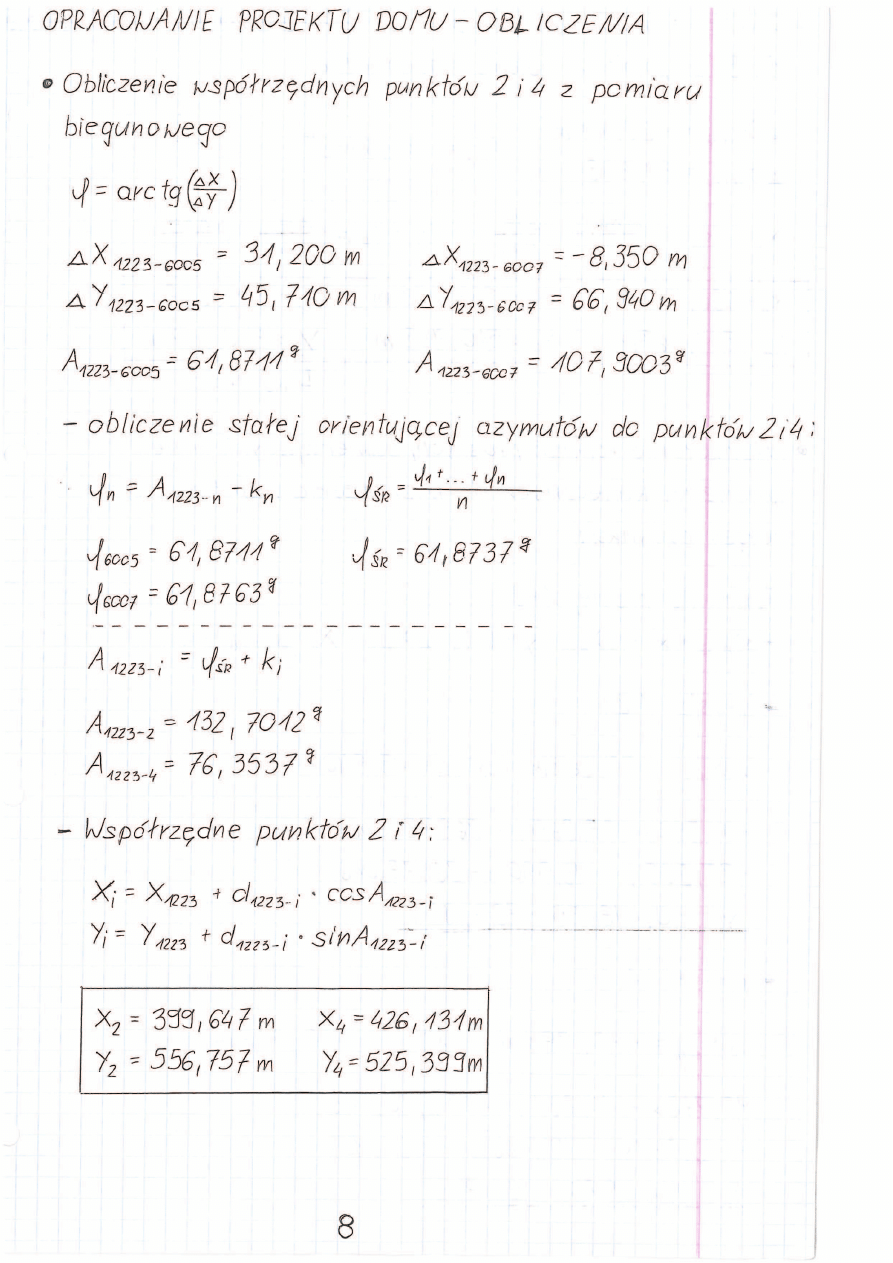 OPRACOWANIE PROJEKTU DOMU - OBLICZENIA
• Obliczenie współrzędnych punktów 2 i 4 z pomiaru
biegunowego
φ = arc tg (ΔX/ΔY)
ΔX1223-6005 = 31,200 m ΔX1223-6007 = -8,350 m
ΔY1223-6005 = 45,710 m ΔY1223-6007 = 66,940 m
A1223-6005 = 61,8711g A1223-6007 = 107,9003g
- obliczenie stałej orientującej azymutów do punktów 2 i 4:
φn = A1223-n - kn φŚR = φ1 + ... + φn / n
φ6005 = 61,8711g φŚR = 61,8737g
φ6007 = 61,8763g
A1223-i = φŚR + ki
A1223-2 = 132,7012g
A1223-4 = 76,3537g
- Współrzędne punktów 2 i 4:
Xi = X1223 + d1223-i · cosA1223-i
Yi = Y1223 + d1223-i · sinA1223-i
X2 = 399,647 m X4 = 426,131 m
Y2 = 556,757 m Y4 = 525,399 m
8